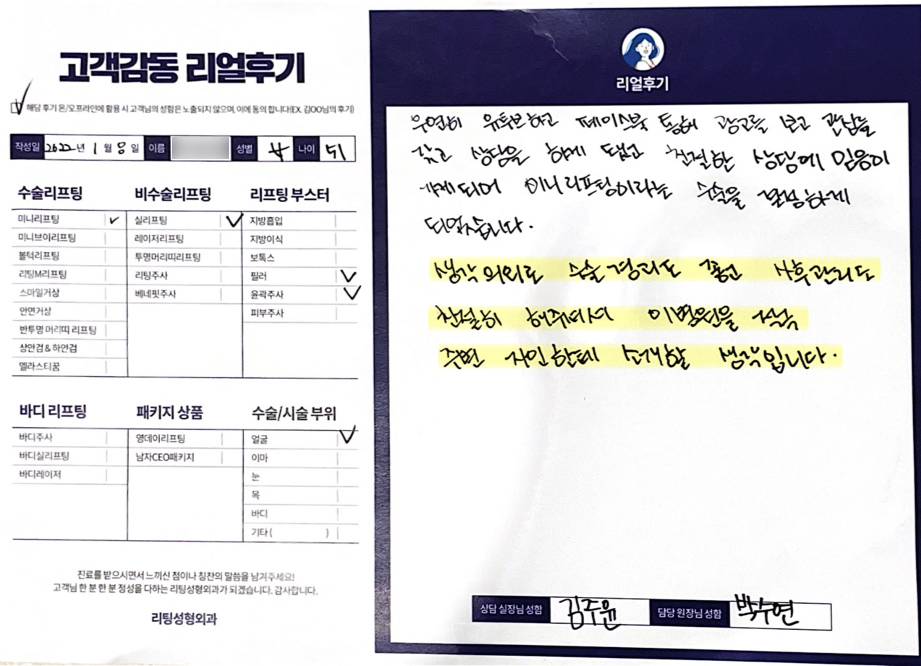 고객감동 리얼후기
해당 후기 온/오프라인에 활용 시 고객님의 성함은 노출되지 않으며, 이에 동의 합니다(EX. 김OO님의 후기)
작성일 2022년 1월 8일 이름 성별 나이 51
수술리프팅
미니리프팅
미니브이리프팅
볼턱리프팅
리팅M리프팅
스마일거상
안면거상
반투명 머리띠 리프팅
상안검 & 하안검
엘라스티꿈
비수술리프팅
실리프팅
레이저리프팅
투명머리띠리프팅
리팅주사
베네핏주사
리프팅 부스터
지방흡입
지방이식
보톡스
필러
윤곽주사
피부주사
바디 리프팅
바디주사
바디실리프팅
바디레이저
패키지 상품
영데이리프팅
남자CEO패키지
수술/시술 부위
얼굴
이마
눈
목
바디
기타 ( )
진료를 받으시면서 느끼신 점이나 칭찬의 말씀을 남겨주세요!
고객님 한 분 한 분 정성을 다하는 리팅성형외과가 되겠습니다. 감사합니다.
리팅성형외과
리얼후기
우연히 유튜브하고 페이스북 통해 광고를 보고 관심을
갖고 상담을 하게 됐고 친절한 상담에 믿음이
가게되어 미니리프팅이라는 수술을 결심하게
되었습니다.
생각 의외로 수술경과도 좋고 사후관리도
친절히 해주셔서 이병원을 적극
주변 지인한테 소개할 생각입니다.
상담 실장님 성함 김주윤 담당 원장님 성함 박수연